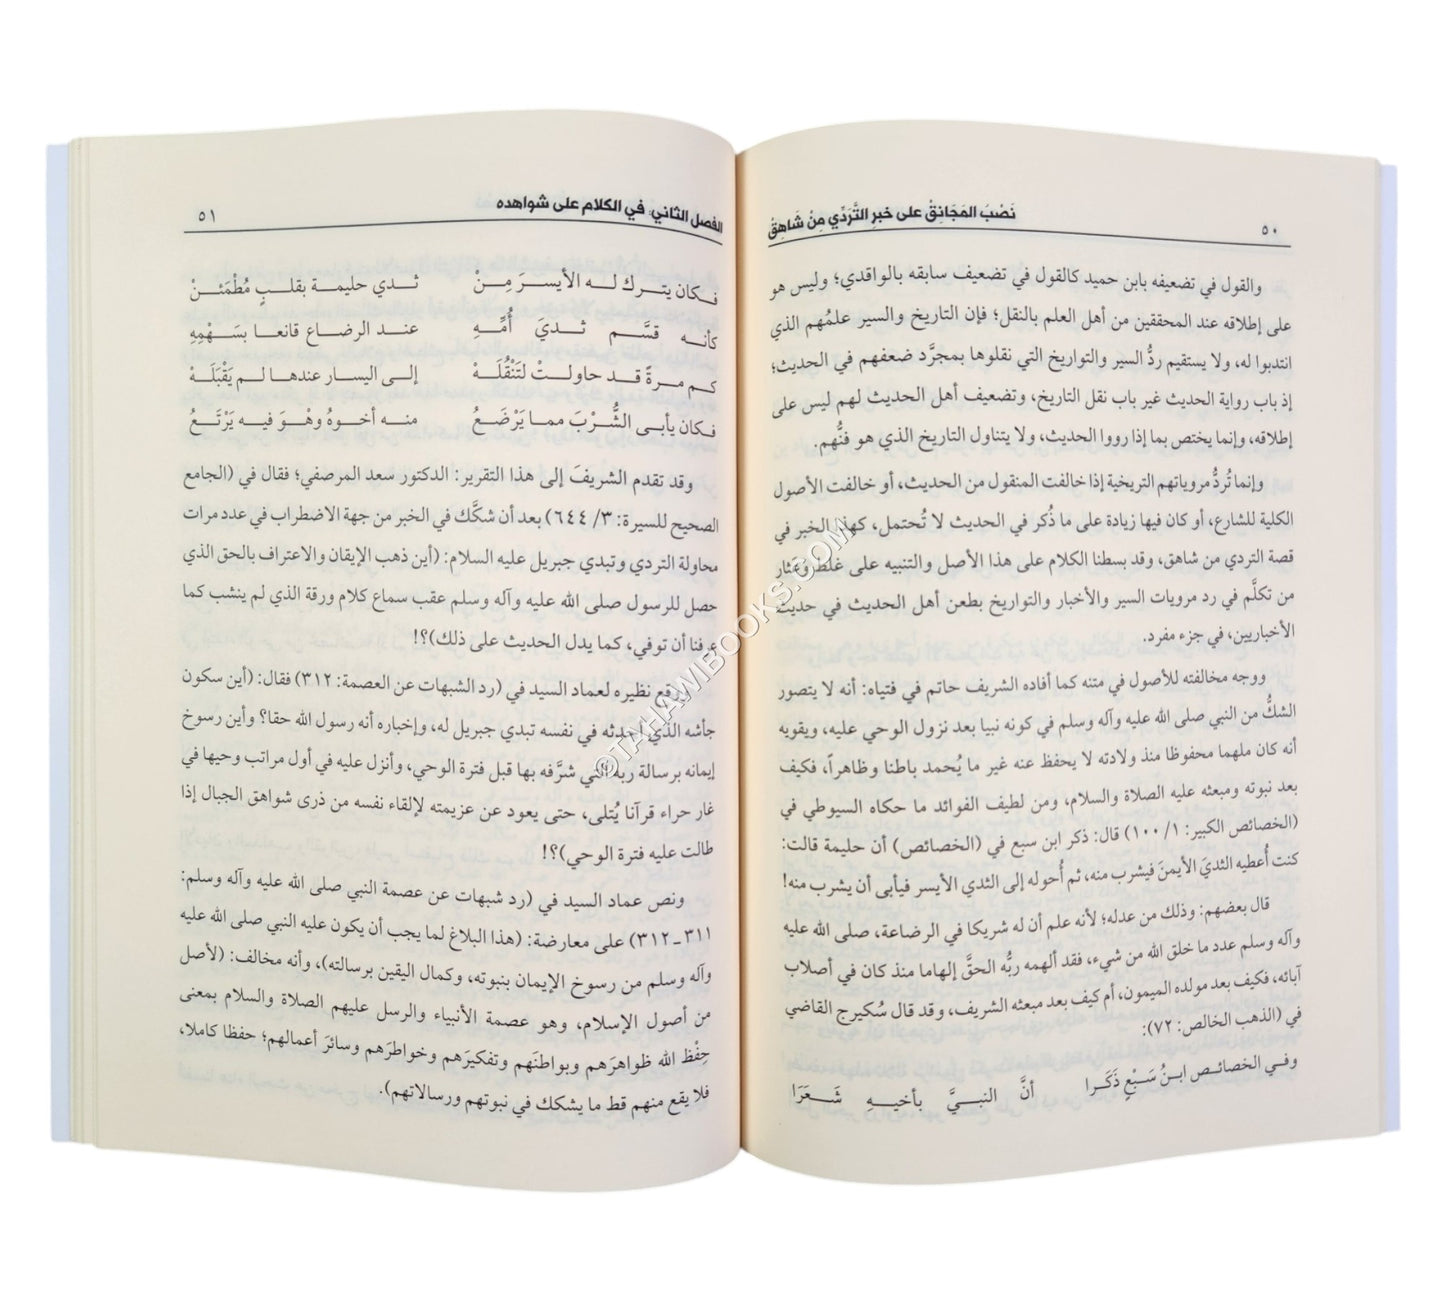 نَصْبَ المَجَانِقْ على خبرِ التَّرَدِّي مِنْ شَاهِقْ
٥٠
والقول في تضعيفه بابن حميد كالقول في تضعيف سابقه بالواقدي؛ وليس هو
على إطلاقه عند المحققين من أهل العلم بالنقل؛ فإن التاريخ والسير علمُهم الذي
انتدبوا له، ولا يستقيم ردُّ السير والتواريخ التي نقلوها بمجرَّد ضعفهم في الحديث؛
إذ باب رواية الحديث غير باب نقل التاريخ، وتضعيف أهل الحديث لهم ليس على
إطلاقه، وإنما يختص بما إذا رووا الحديث، ولا يتناول التاريخ الذي هو فنُّهم.
وإنما تُردُّ مروياتهم التريخية إذا خالفت المنقول من الحديث، أو خالفت الأصول
الكلية للشارع، أو كان فيها زيادة على ما ذُكر في الحديث لا تُحتمل، كهذا الخبر في
قصة التردي من شاهق، وقد بسطنا الكلام على هذا الأصل والتنبيه على غلط وعَثار
من تكلَّم في رد مرويات السير والأخبار والتواريخ بطعن أهل الحديث في حديث
الأخباريين، في جزء مفرد.
ووجه مخالفته للأصول في متنه كما أفاده الشريف حاتم في فتياه: أنه لا يتصور
الشكُّ من النبي صلى الله عليه وآله وسلم في كونه نبيا بعد نزول الوحي عليه، ويقويه
أنه كان ملهما محفوظا منذ ولادته لا يحفظ عنه غير ما يُحمد باطنا وظاهراً، فكيف
بعد نبوته ومبعثه عليه الصلاة والسلام، ومن لطيف الفوائد ما حكاه السيوطي في
(الخصائص الكبير: ١/ ١٠٠) قال: ذكر ابن سبع في (الخصائص) أن حليمة قالت:
كنت أُعطيه الثديَ الأيمنَ فيشرب منه، ثم أُحوله إلى الثدي الأيسر فيأبى أن يشرب منه!
قال بعضهم: وذلك من عدله؛ لأنه علم أن له شريكا في الرضاعة، صلى الله عليه
وآله وسلم عدد ما خلق الله من شيء، فقد ألهمه ربُّه الحقَّ إلهاما منذ كان في أصلاب
آبائه، فكيف بعد مولده الميمون، أم كيف بعد مبعثه الشريف، وقد قال سُكيرج القاضي
في (الذهب الخالص: ٧٢):
وفي الخصائص ابنُ سَبْعٍ ذَكَرا أنَّ النبيَّ بأخيهِ شَعَرَا
الفصل الثاني: في الكلام على شواهده
٥١
فكان يترك له الأيسرَ مِنْ ثدي حليمة بقلبٍ مُطْمَئنْ
كأنه قسَّم ثديَ أُمِّهِ عند الرضاع قانعا بسَهْمِهِ
كم مرةً قد حاولتْ لتَنْقُلَهْ إلى اليسار عندها لم يَقْبَلَهْ
فكان يأبى الشُّرْبَ مما يَرْضَعُ منه أخوهُ وهْوَ فيه يَرْتَعُ
وقد تقدم الشريفَ إلى هذا التقرير: الدكتور سعد المرصفي؛ فقال في (الجامع
الصحيح للسيرة: ٣/ ٦٤٤) بعد أن شكَّك في الخبر من جهة الاضطراب في عدد مرات
محاولة التردي وتبدي جبريل عليه السلام: (أين ذهب الإيقان والاعتراف بالحق الذي
حصل للرسول صلى الله عليه وآله وسلم عقب سماع كلام ورقة الذي لم ينشب كما
عرفنا أن توفي، كما يدل الحديث على ذلك)؟!
ووقع نظيره لعماد السيد في (رد الشبهات عن العصمة: ٣١٢) فقال: (أين سكون
جأشه الذي أحدثه في نفسه تبدي جبريل له، وإخباره أنه رسول الله حقا؟ وأين رسوخ
إيمانه برسالة ربه التي شرَّفه بها قبل فترة الوحي، وأنزل عليه في أول مراتب وحيها في
غار حراء قرآنا يُتلى، حتى يعود عن عزيمته لإلقاء نفسه من ذرى شواهق الجبال إذا
طالت عليه فترة الوحي)؟!
ونص عماد السيد في (رد شبهات عن عصمة النبي صلى الله عليه وآله وسلم:
٣١١-٣١٢) على معارضة: (هذا البلاغ لما يجب أن يكون عليه النبي صلى الله عليه
وآله وسلم من رسوخ الإيمان بنبوته، وكمال اليقين برسالته)، وأنه مخالف: (لأصل
من أصول الإسلام، وهو عصمة الأنبياء والرسل عليهم الصلاة والسلام بمعنى
حِفْظ الله ظواهرَهم وبواطنَهم وتفكيرَهم وخواطرَهم وسائرَ أعمالهم؛ حفظا كاملا،
فلا يقع منهم قط ما يشكك في نبوتهم ورسالاتهم).
©TAHAWIBOOKS.COM